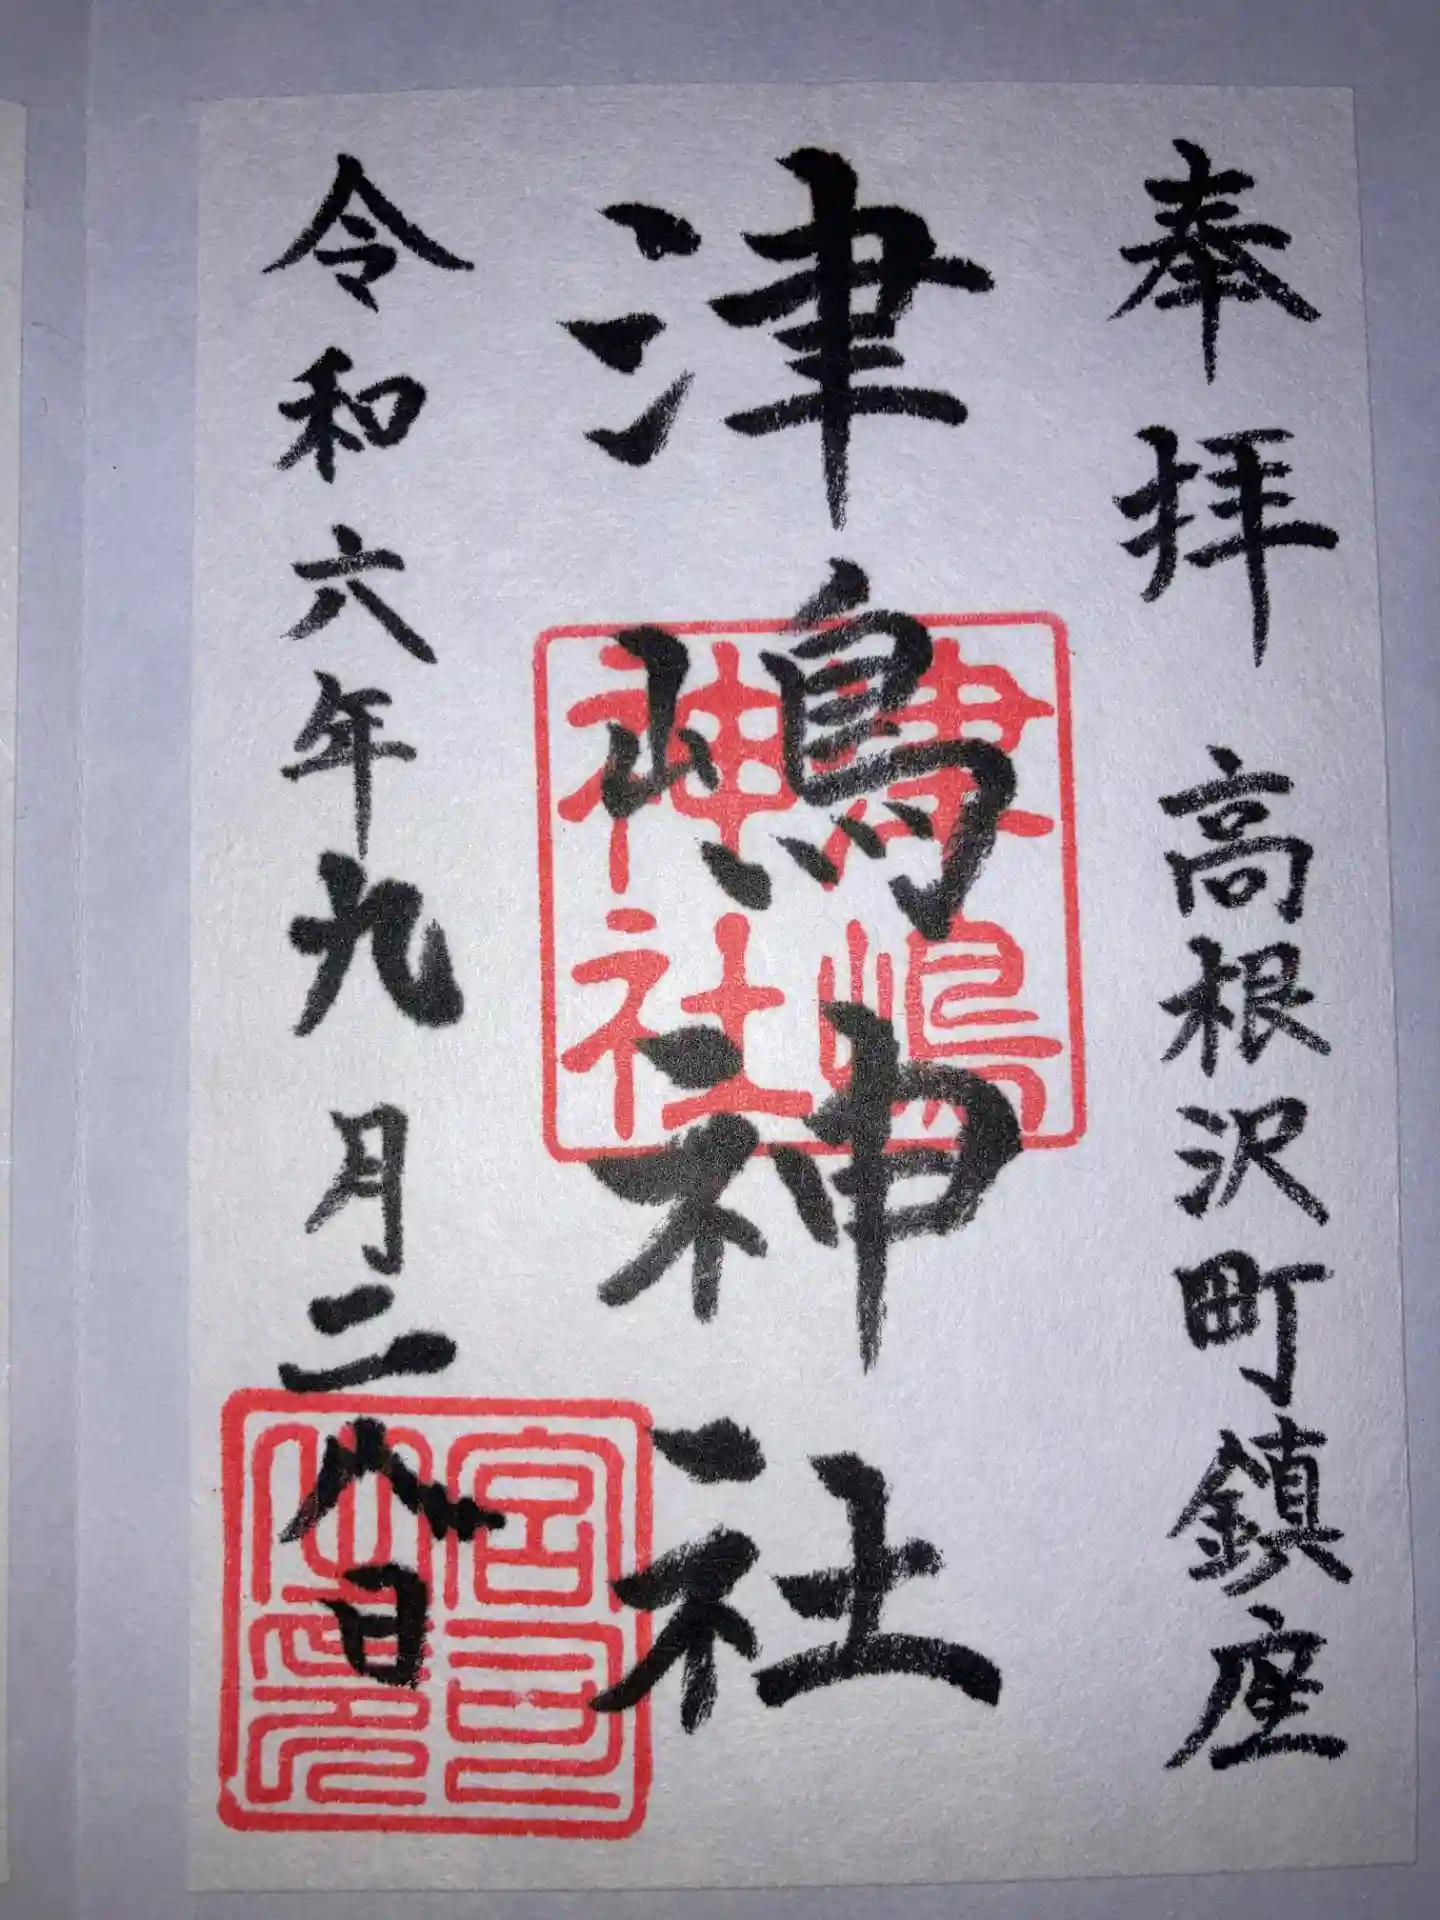 奉拝 高根沢町鎮座
津嶋神社
津嶋
神社
令和六年九月二八日
宮司
之印